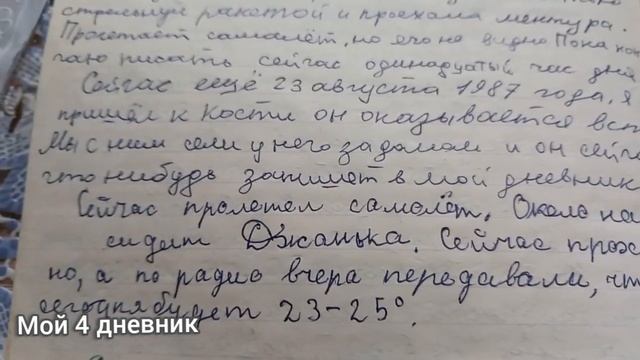 стрельнул ракетой и проехала ментура.
Пролетает самолёт, но его не видно Пока кон
чаю писать сейчас одинадцатый час дня
Сейчас ещё 23 августа 1987 года. Я
пришёл к Кости он оказывается вст
Мы с ним сели у него за домом и он сейч
что нибудь запишет в мой дневник
Сейчас пролетел самолёт. Около на
сидит Джонька. Сейчас прох
но, а по радио вчера передавали, чт
сегодня будет 23-25°.
Мой 4 дневник